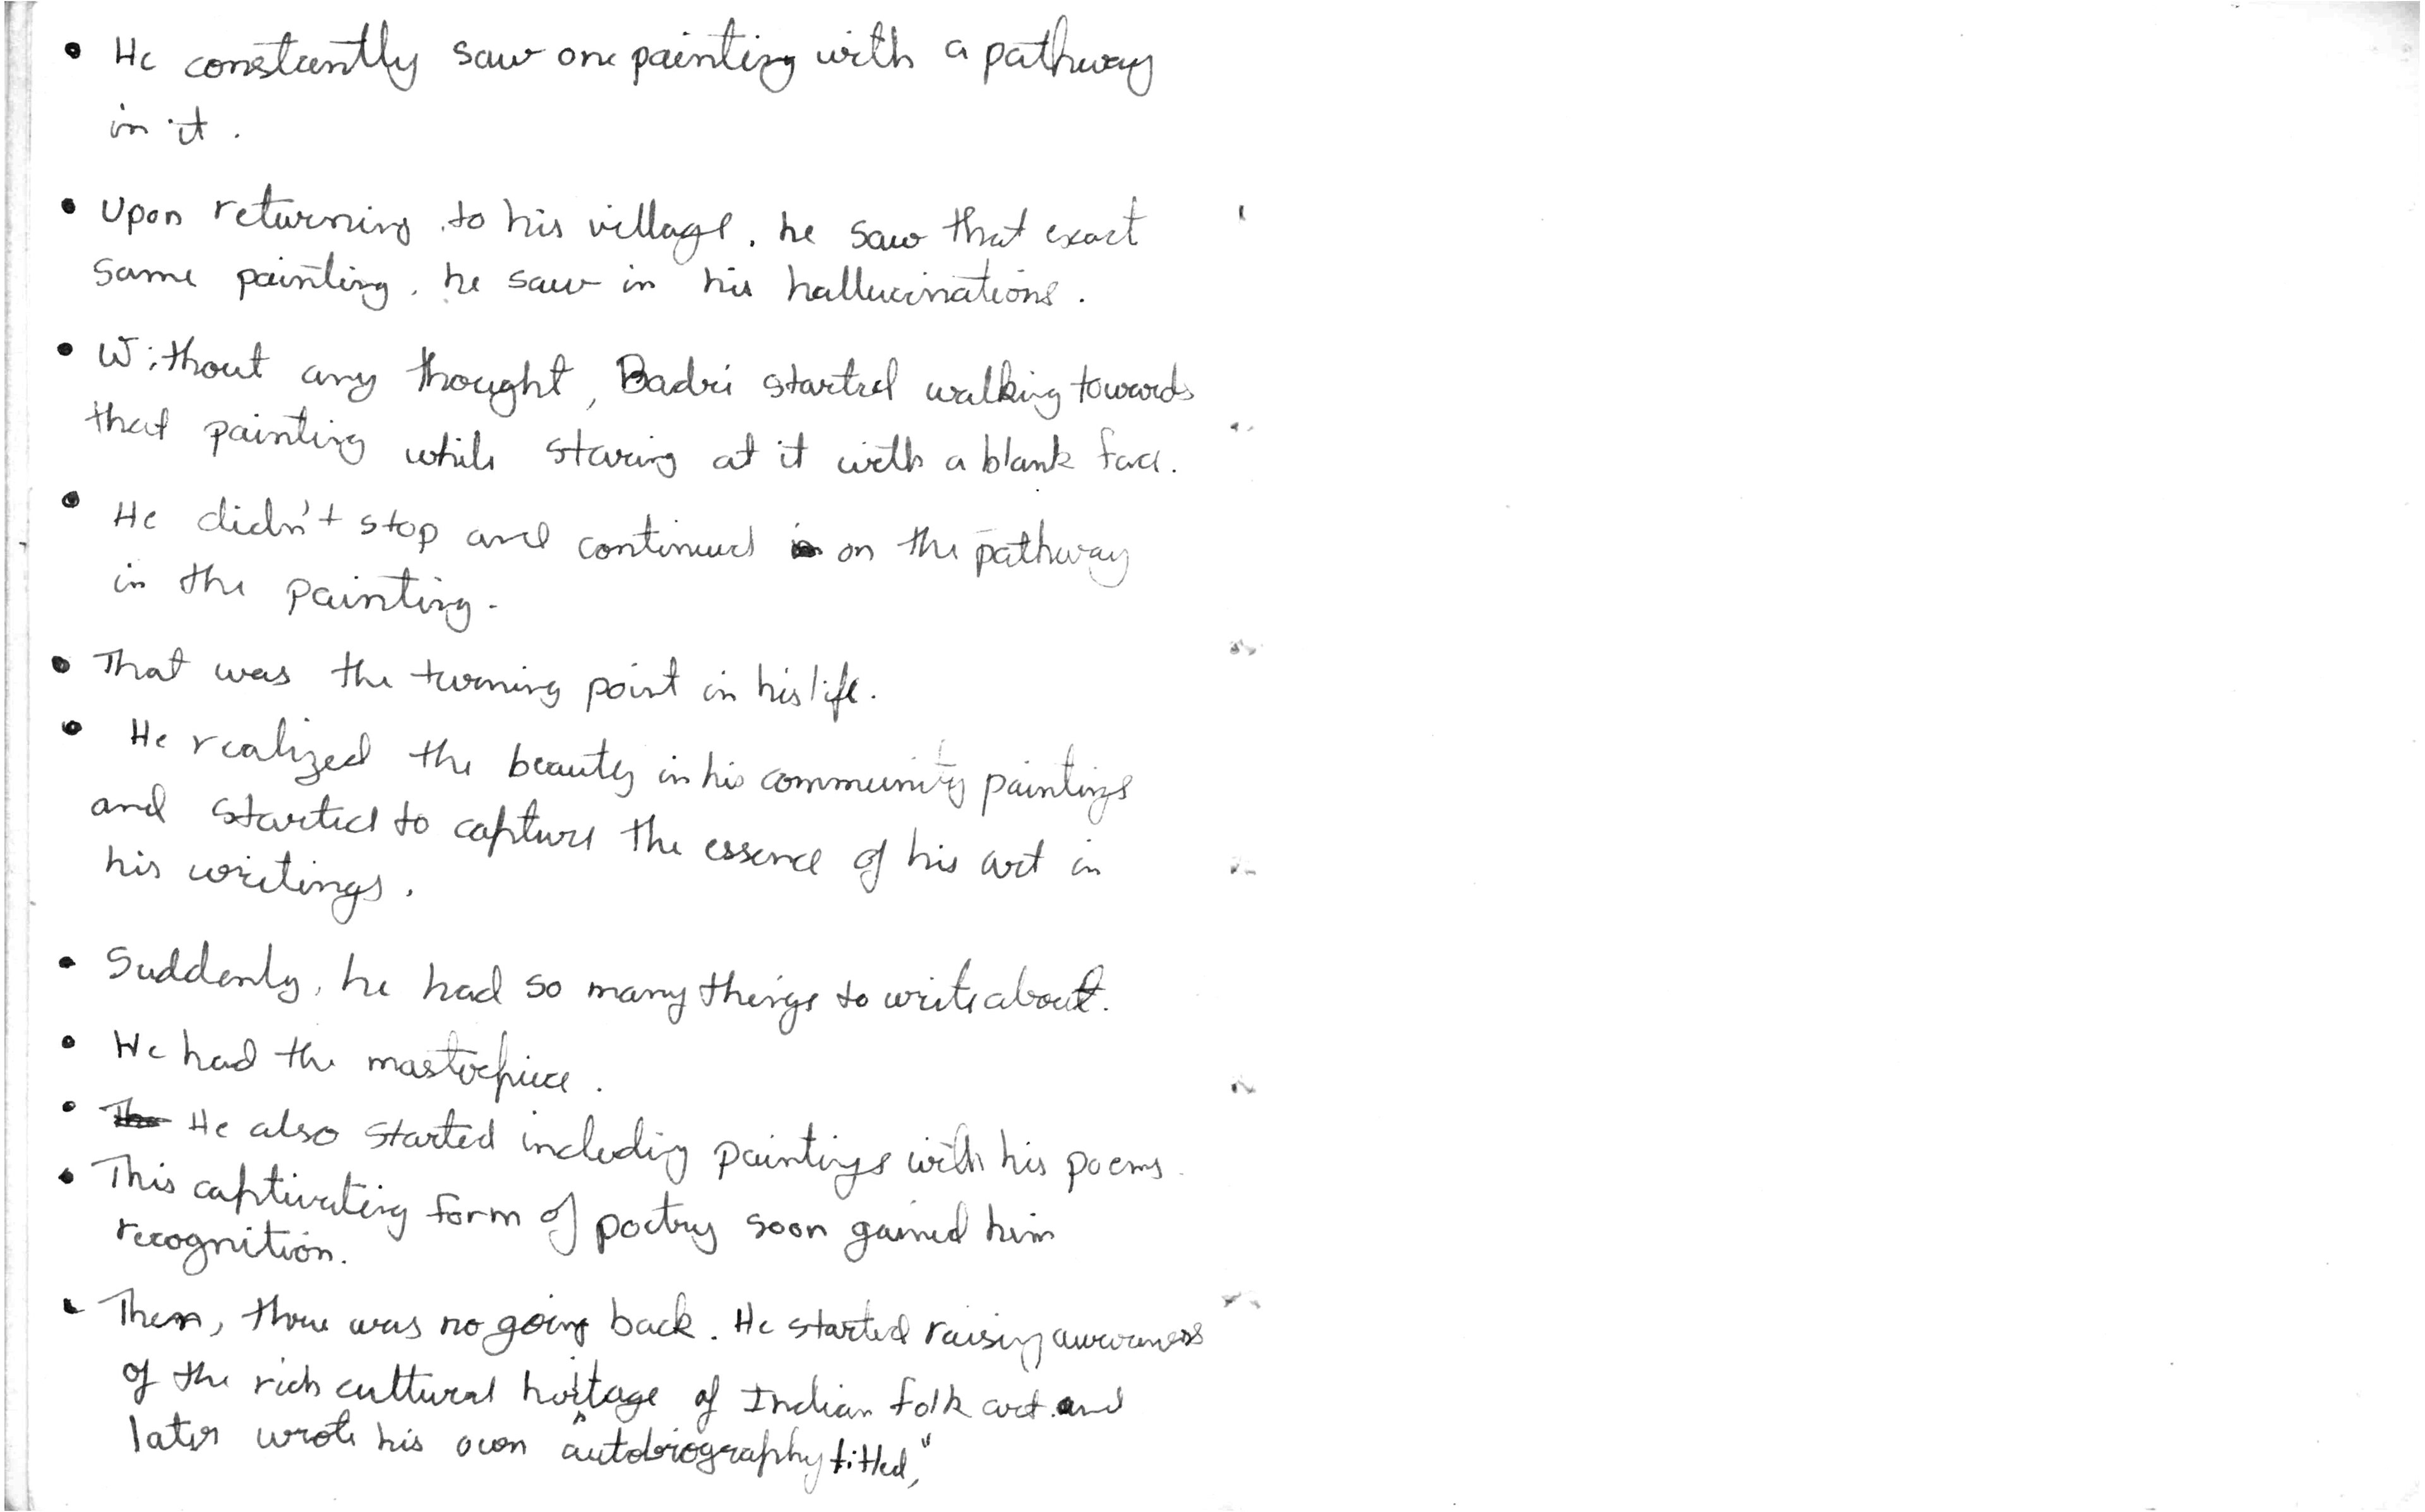 • He constantly saw one painting with a pathway
in it.
• Upon returning to his village, he saw that exact
same painting, he saw in his hallucinations.
• Without any thought, Badri started walking towards
that painting while staring at it with a blank face.
• He didn't stop and continued on the pathway
in the painting.
• That was the turning point in his life.
• He realized the beauty in his community paintings
and started to capture the essence of his art in
his writings.
• Suddenly, he had so many things to write about.
• He had the masterpiece.
• He also started including paintings with his poems.
• This captivating form of poetry soon gained him
recognition.
• Then, there was no going back. He started raising awareness
of the rich cultural heritage of Indian folk art and
later wrote his own autobiography titled, "